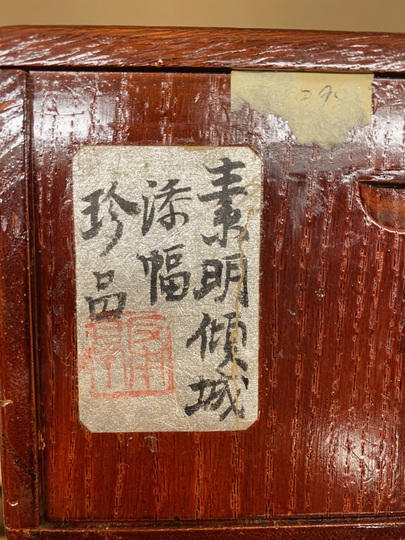 素明傾城
添幅
珍品